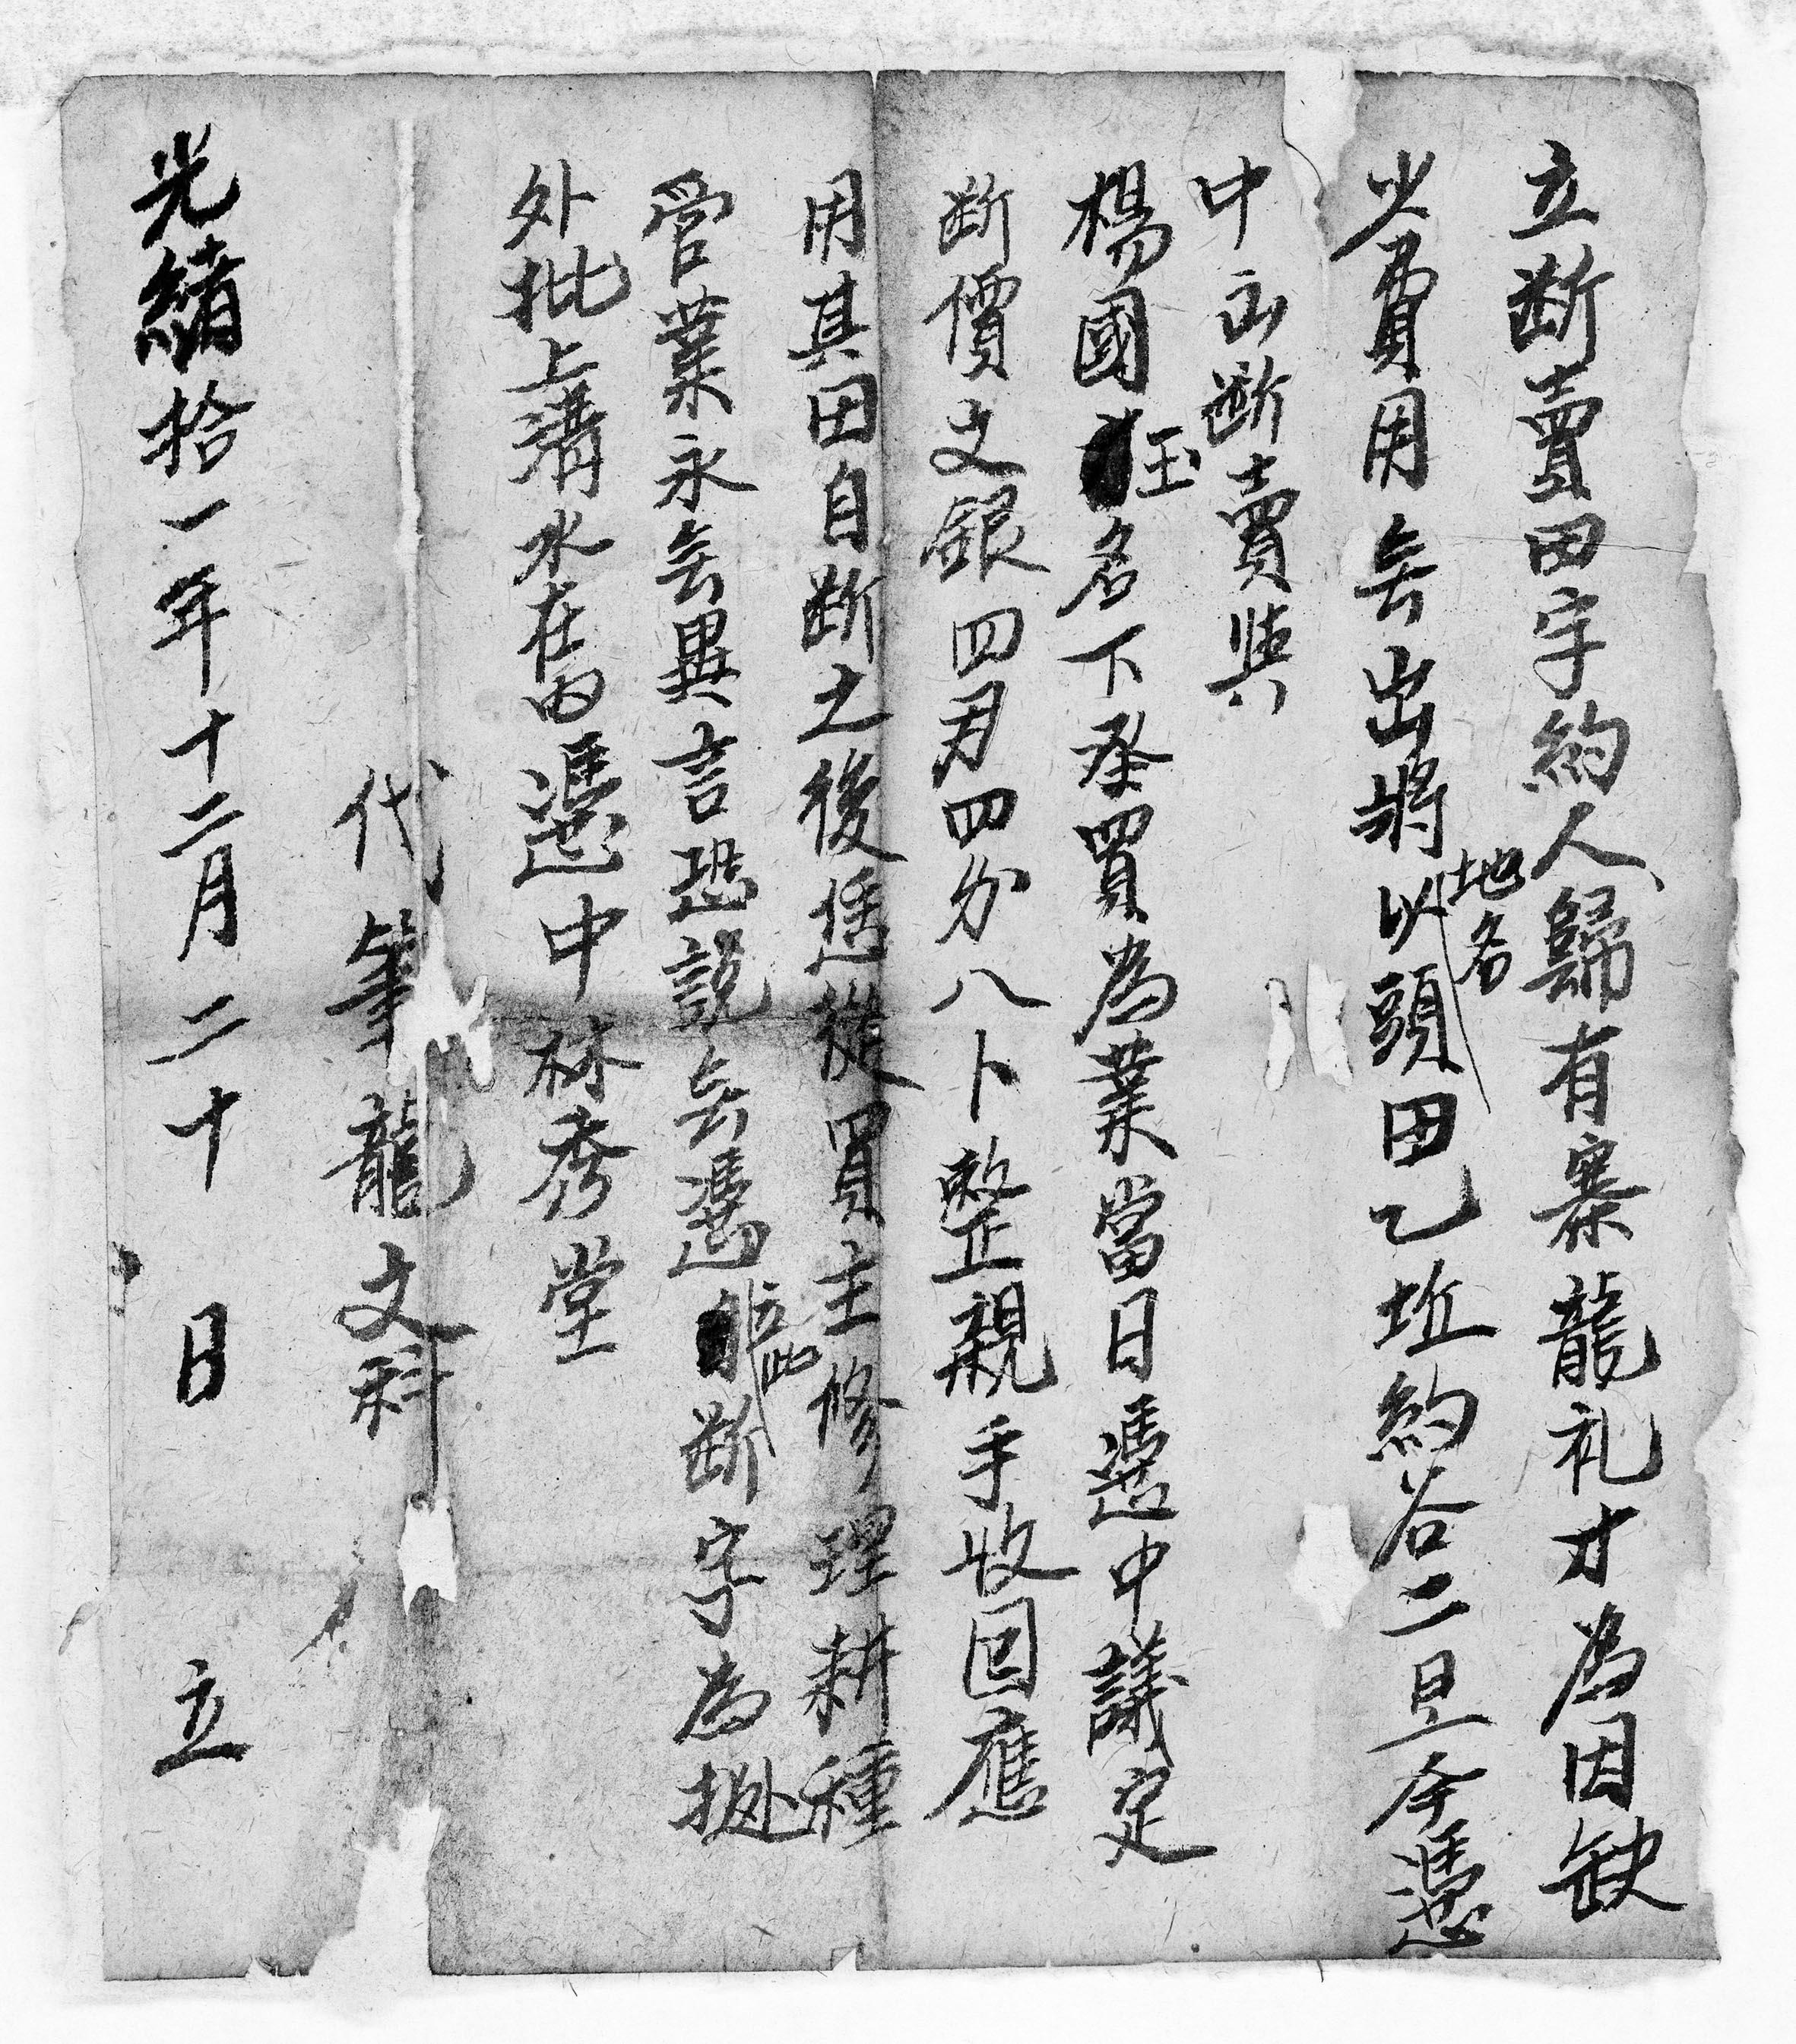 立断賣田字約人歸有寨龍礼才為因缺
少費用無出將地名以頭田乙坵約谷二旦今憑
中出断賣與
楊國玉名下承買為業當日憑中議定
断價文銀四両四分八卜整親手收回應
用其田自断之後恁從買主修理耕種
管業永無異言恐説無憑立此断字為拠
外批上溝水在内憑中林秀堂
代筆龍文科
光緒拾一年十二月二十日立